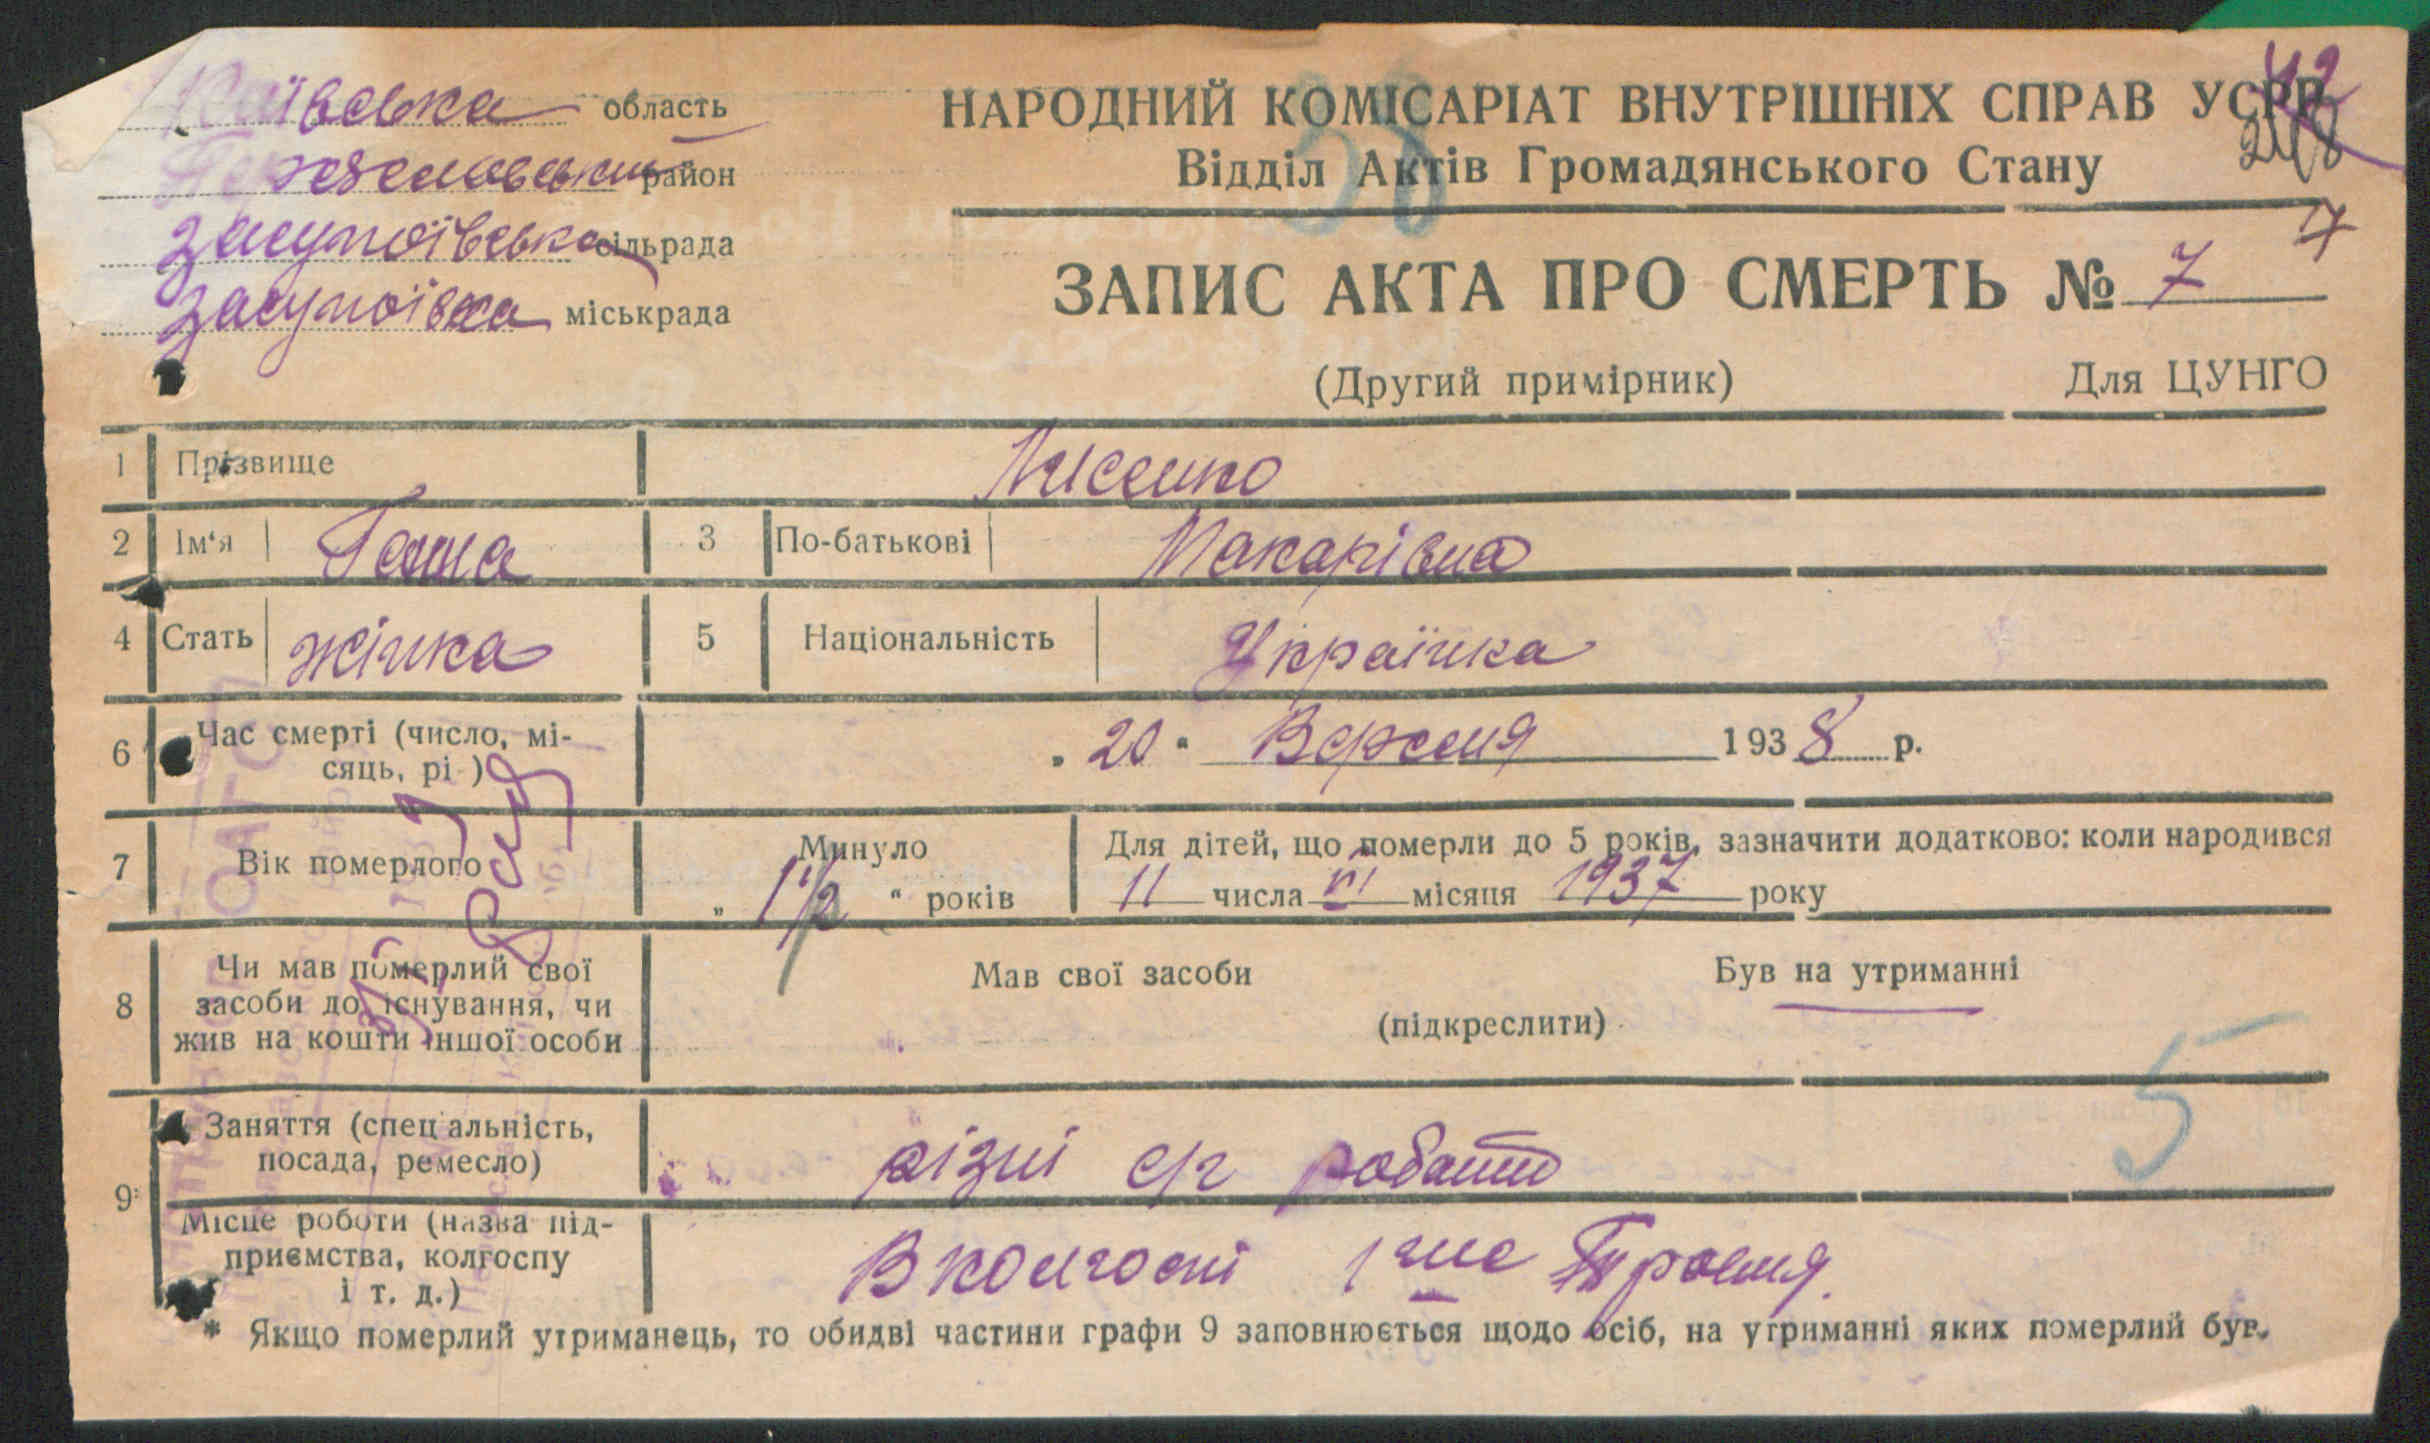 Київська область
район
Засупоївська сільрада
Засупоївка міськрада
НАРОДНИЙ КОМІСАРІАТ ВНУТРІШНІХ СПРАВ УСРР
Відділ Актів Громадянського Стану
ЗАПИС АКТА ПРО СМЕРТЬ № 7
7
(Другий примірник) Для ЦУНГО
1 Прізвище Лисенко
2 Ім'я Ганна 3 По-батькові Макарівна
4 Стать жінка 5 Національність Українка
6 Час смерті (число, мі-
сяць, рі )
„ 20 " Вересня 1938 р.
7 Вік померлого
Минуло
„ 1 1/2 " років
Для дітей, що померли до 5 років, зазначити додатково: коли народився
11 числа VI місяця 1937 року
8 Чи мав померлий свої
засоби до існування, чи
жив на кошти іншої особи
Мав свої засоби Був на утриманні
(підкреслити)
5
9 Заняття (спец альність,
посада, ремесло)
різні с/г роботи
Місце роботи (назва під-
приємства, колгоспу
і т. д.)
В колгоспі 1ше Травня
* Якщо померлий утриманець, то обидві частини графи 9 заповнюється щодо осіб, на утриманні яких померлий був.